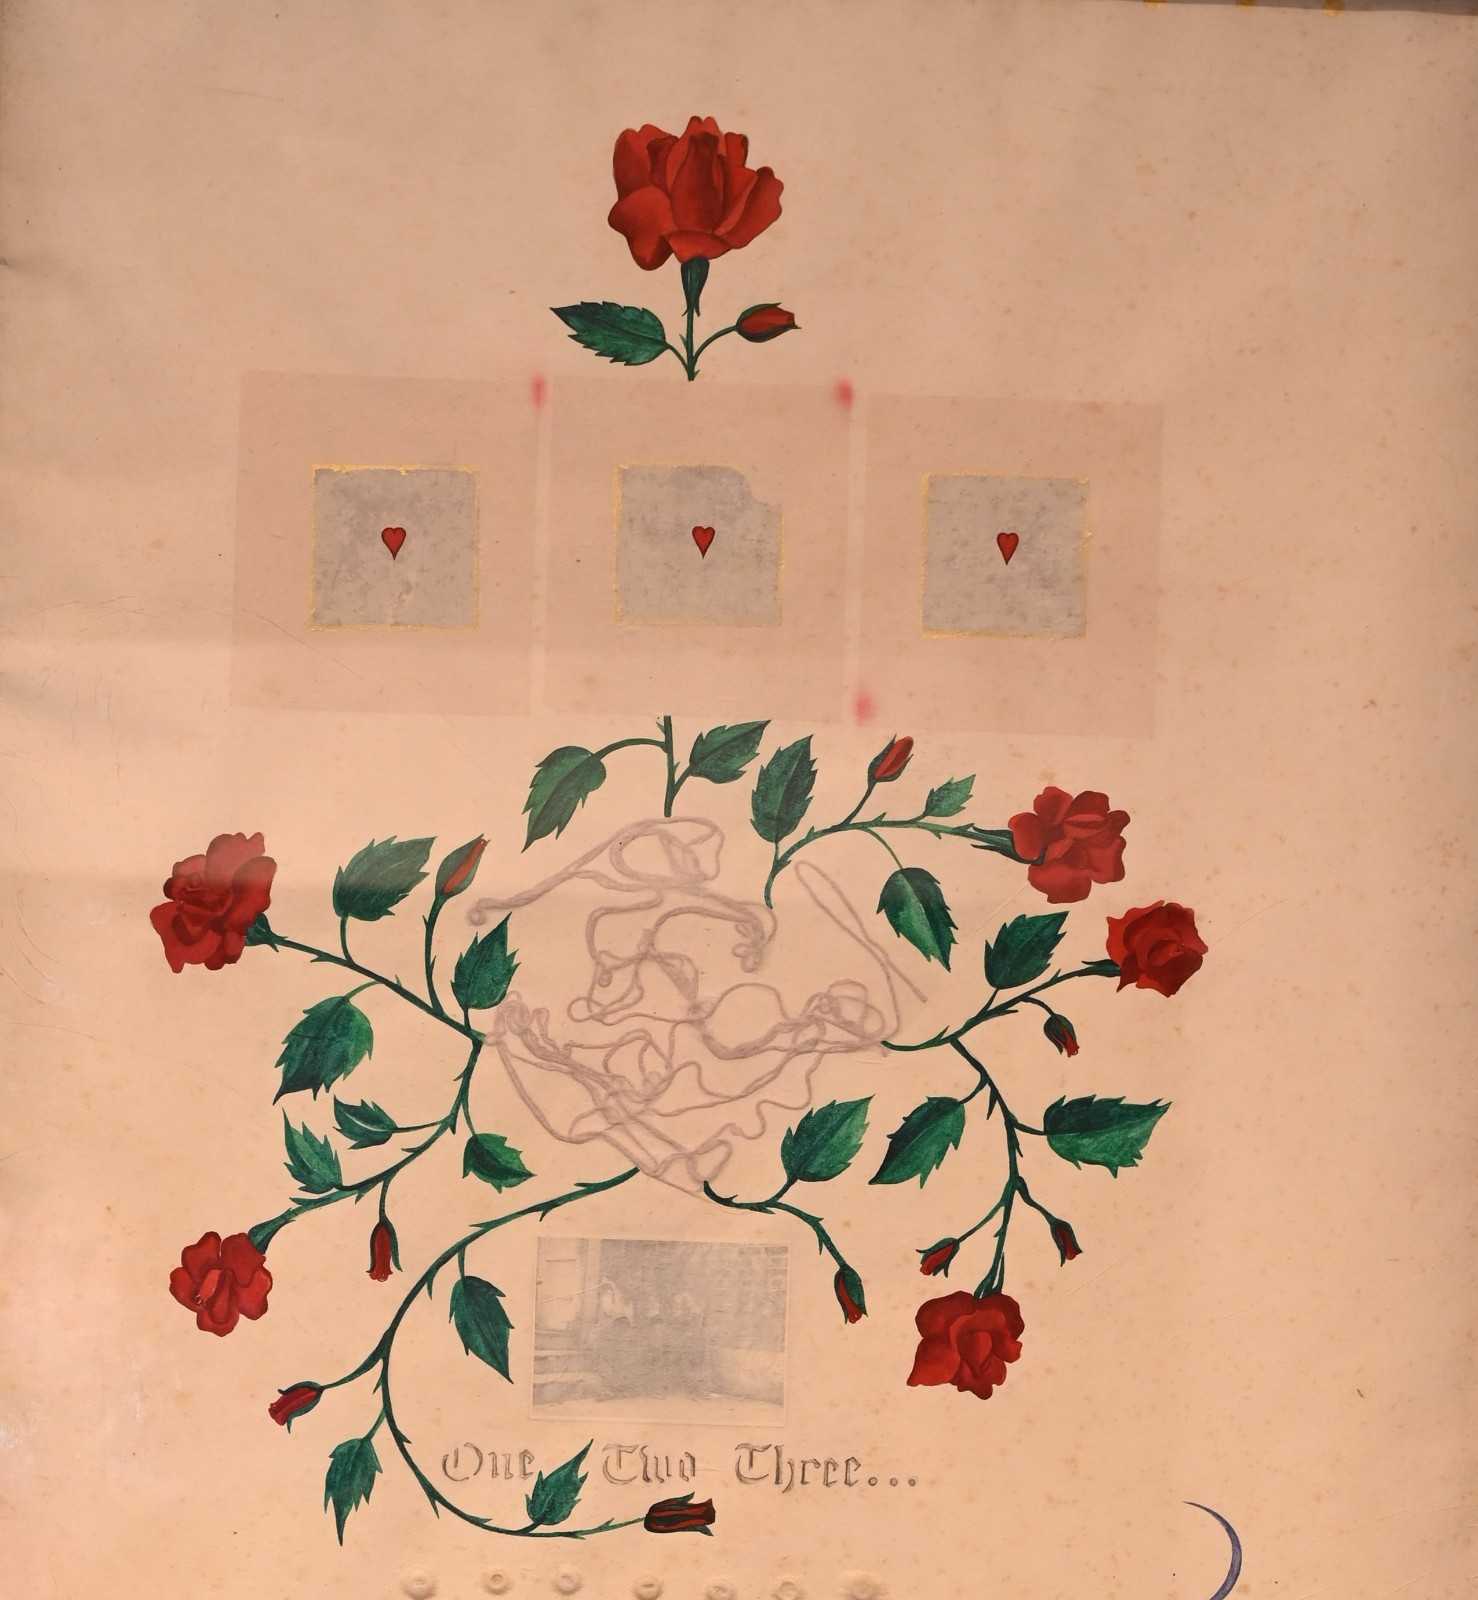 One Two Three...